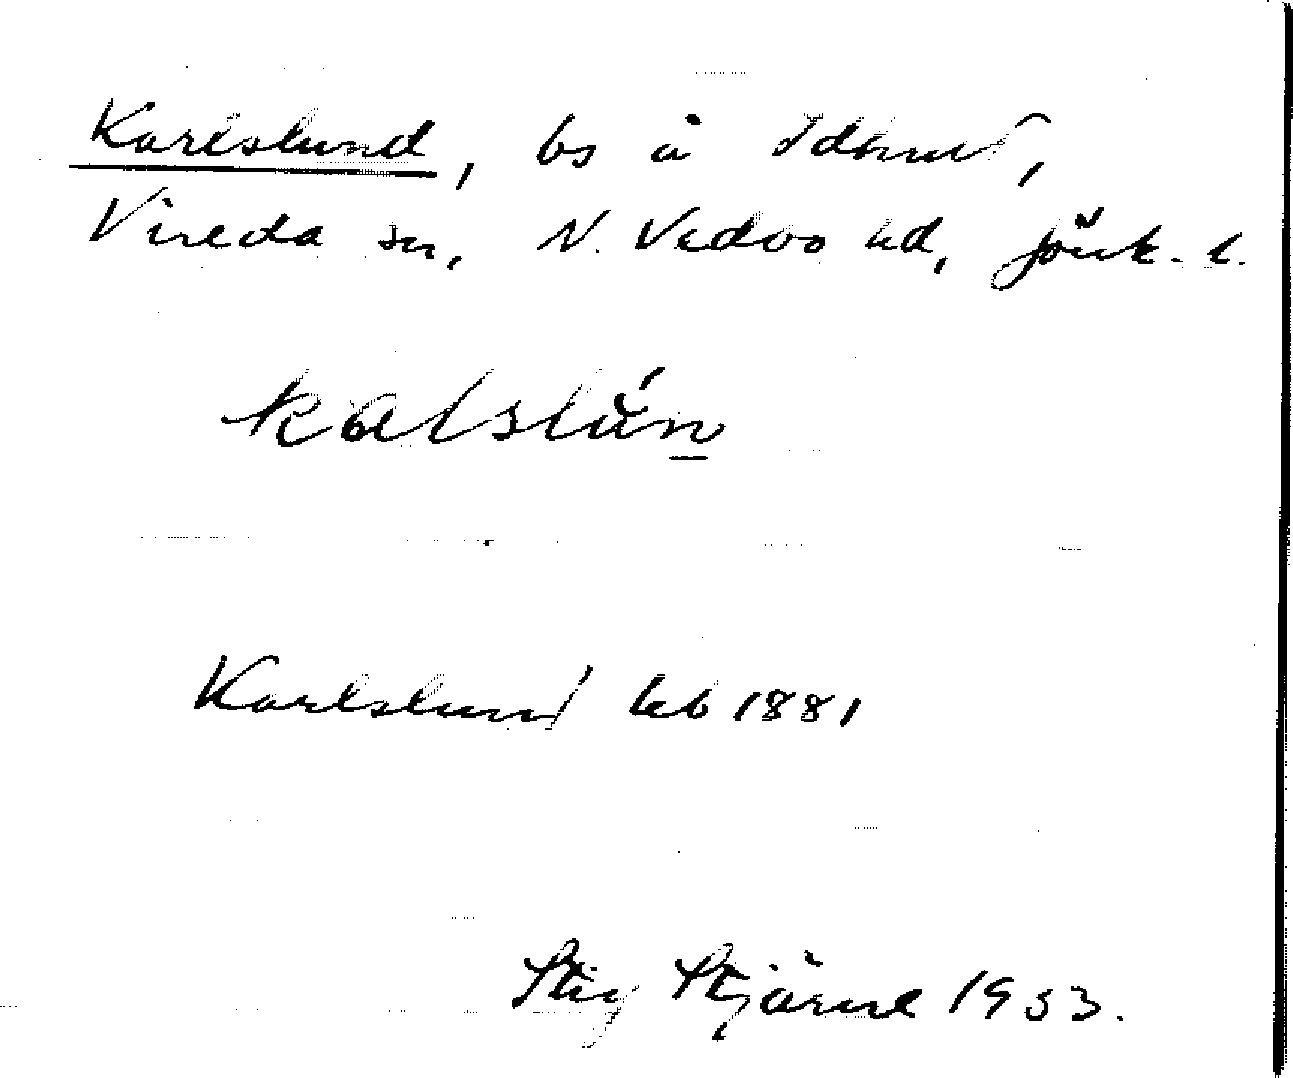 Karlslund, bs å Idhult,
Vireda sn, N. Vedbo hd, Jönk. l.
kalslún
Karlslund kb 1881
Stig Stjärne 1953.